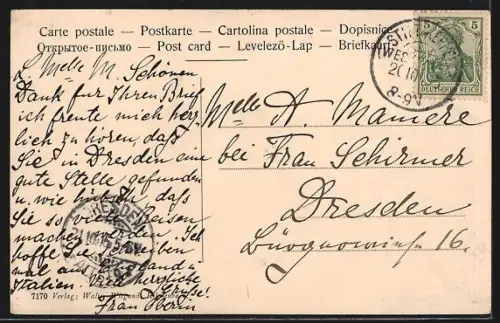 Carte postale — Postkarte — Cartolina postale — Dopisnice
Открытое-письмо — Post card — Levelező-Lap — Briefkaart
5
DEUTSCHES REICH
8-9V
L. Melle M. Schönen
Dank für Ihren Brief
ich freute mich herz-
lich zu hören, daß
Sie in Dresden eine
gute Stelle gefunden
u. wie daß
Sie so Reisen
machen Ich
hoffe Sie schreiben
mal aus u.
Italien. herzliche
Grüße!
Frau Oberin
Melle A. Maniere
bei Frau Schirmer
Dresden
16.
7170 Verlag: Walter Wiegand